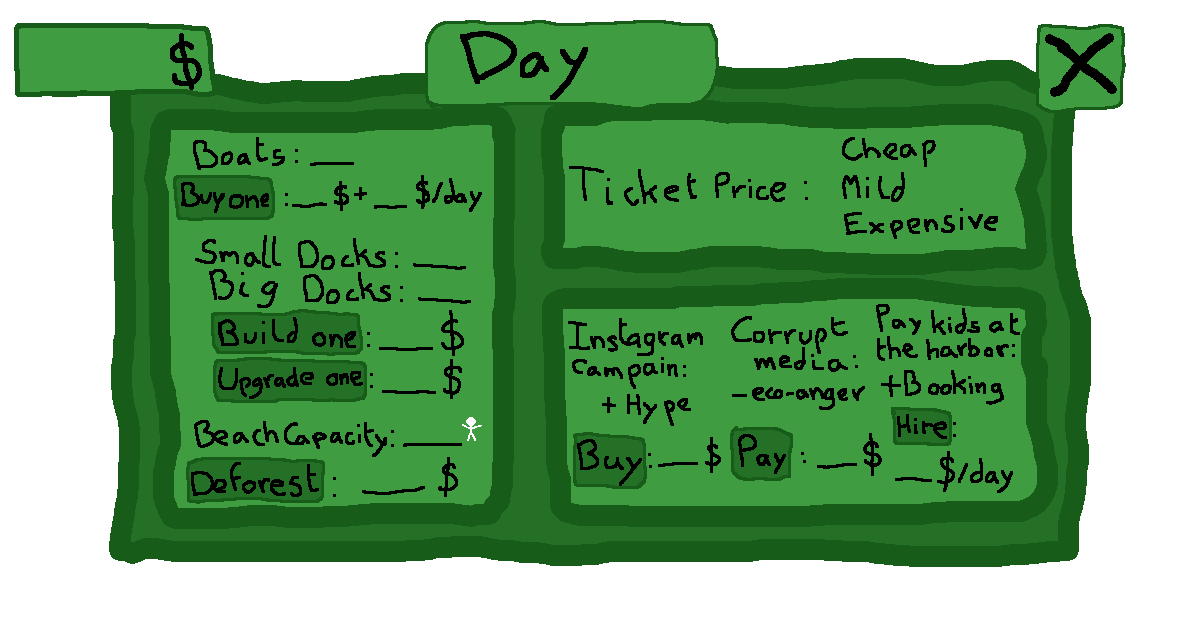 $
Day
X
Boats: __
Buy one : __ $ + __ $/day
Small Docks: __
Big Docks: __
Build one : __ $
Upgrade one : __ $
Beach Capacity: __
Deforest : __ $
Ticket Price :
Cheap
Mild
Expensive
Instagram
campain:
+ Hype
Buy : __ $
Corrupt
media:
- eco-anger
Pay : __ $
Pay kids at
the harbor:
+Booking
Hire :
__ $/day